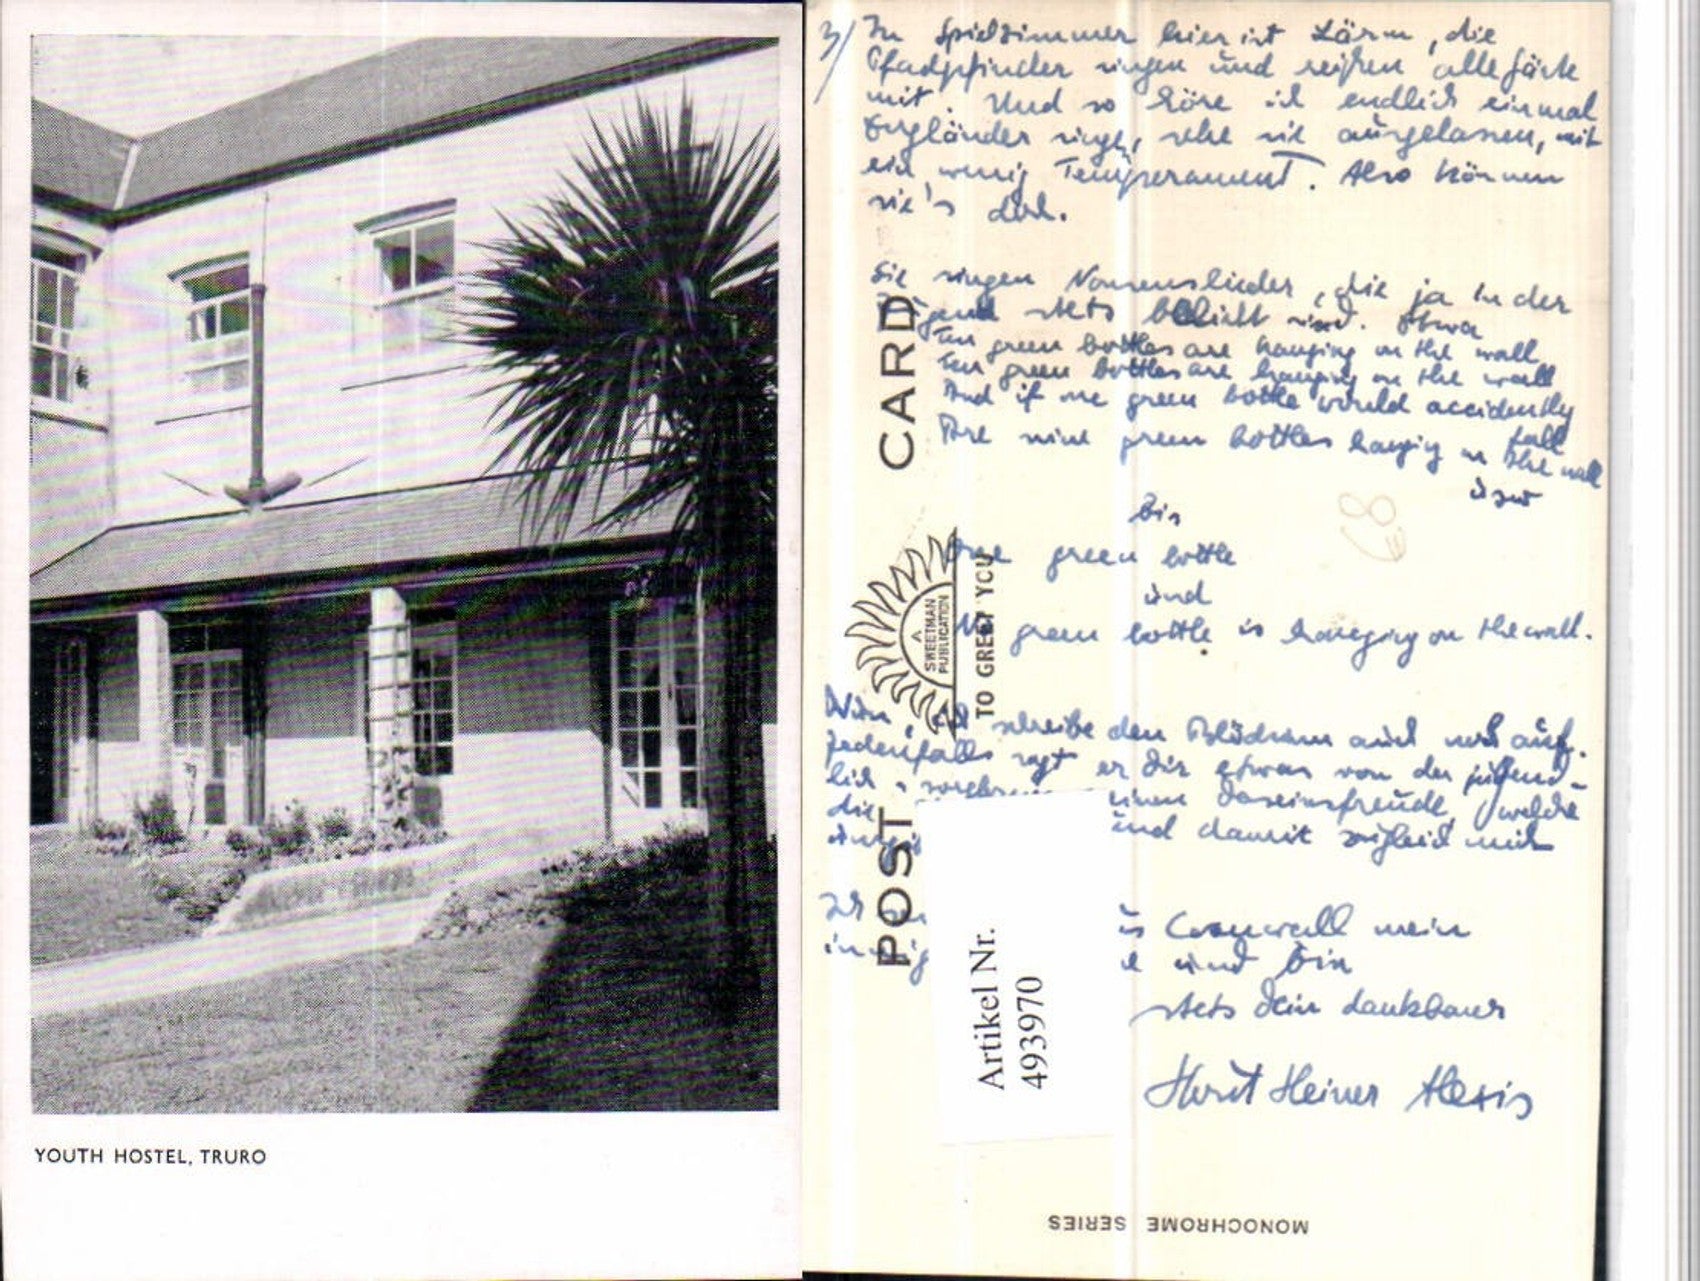 YOUTH HOSTEL, TRURO
3/ Im Spielzimmer hier ist Lärm, die
Pfadpfinder singen und reißen alle Gäste
mit. Und so höre ich endlich einmal
Engländer singen, sehe sie ausgelassen, mit
ein wenig Temperament. Also können
sie's doch.
Sie singen Nonsenslieder, die ja in der
Jugend stets beliebt sind. Etwa
Ten green bottles are hanging on the wall
Ten green bottles are hanging on the wall
And if one green bottle would accidently
fall
Are nine green bottles hanging on the wall
usw
bis
One green bottle
und
No green bottle is hanging on the wall.
Nun, ich schreibe den Blödsinn auch noch auf.
Jedenfalls sagt er Dir etwas von der jugend-
lich - einen Daseinsfreude, welche
die und damit zugleich mich
Ich aus Cornwall mein
innig und bin
stets Dein dankbarer
Horst Heiner Alexis
POST CARD
A
SWEETMAN
PUBLICATION
TO GREET YOU
Artikel Nr.
4939970
MONOCHROME SERIES